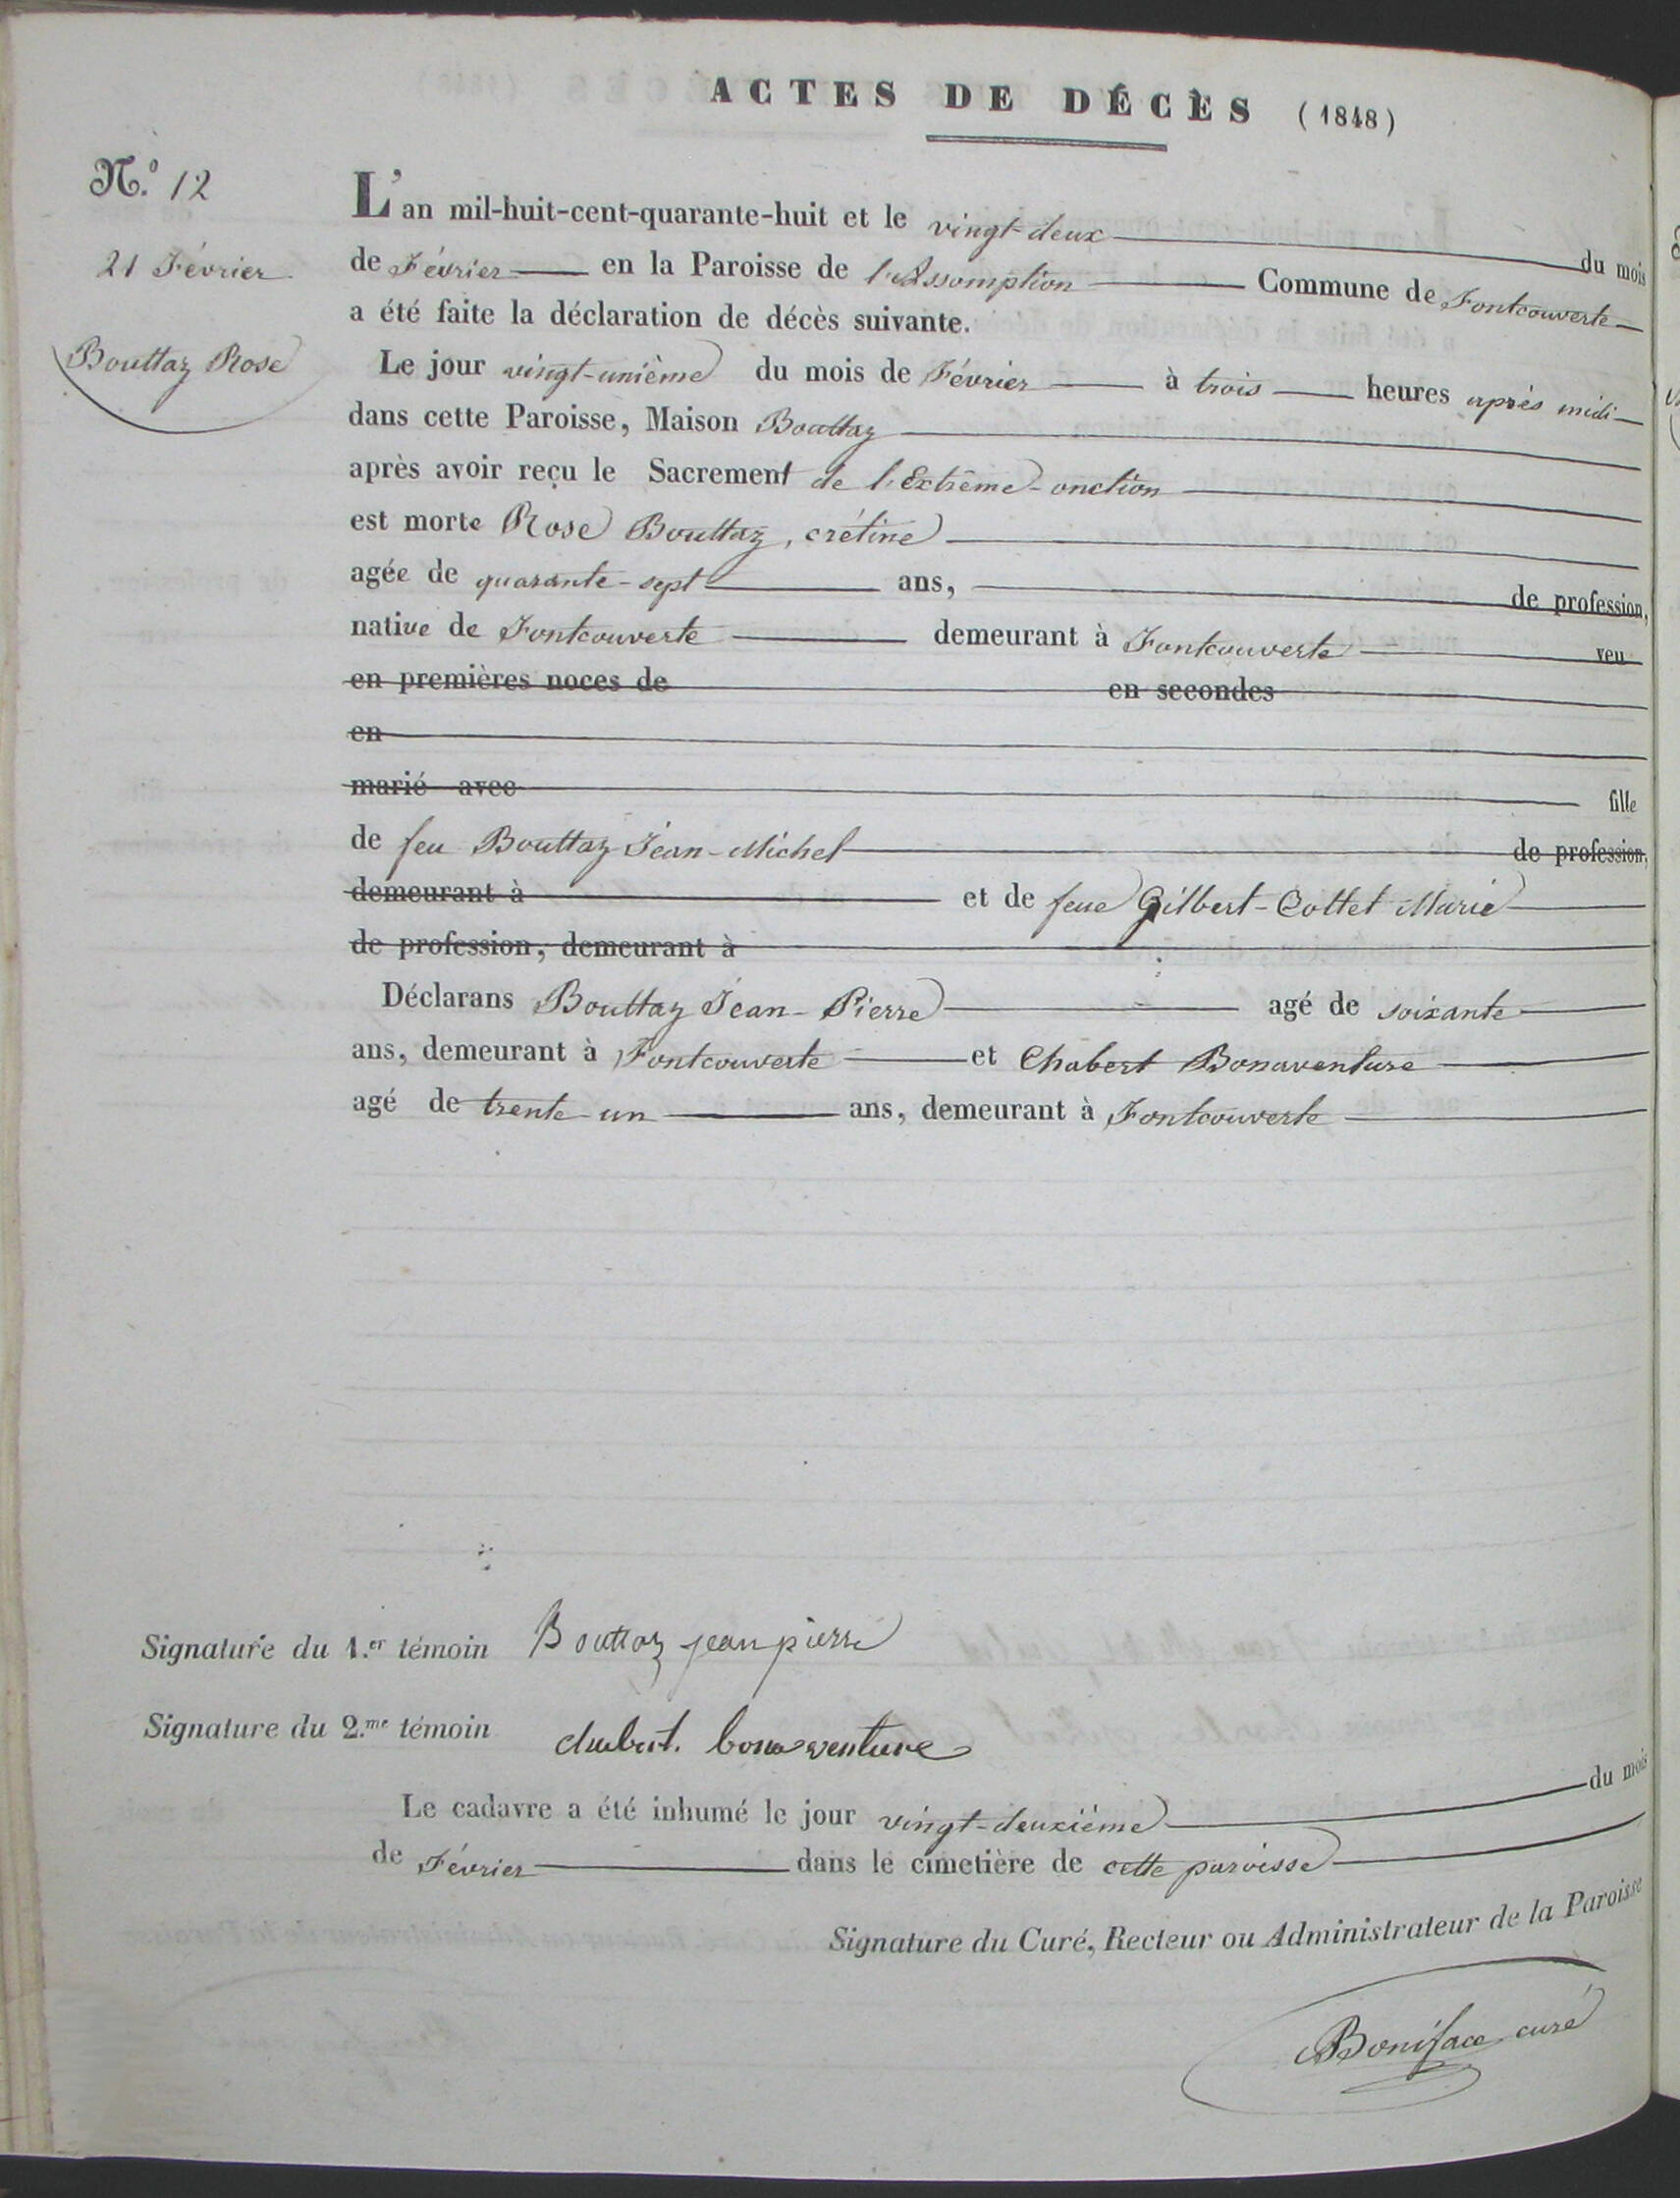 ACTES DE DÉCÈS (1848)
N.º 12
21 Février
Bouttaz Rose
L'an mil-huit-cent-quarante-huit et le vingt-deux du mois
de Février en la Paroisse de l'Assomption Commune de Fontcouverte
a été faite la déclaration de décès suivante.
Le jour vingt-unième du mois de Février à trois heures après midi
dans cette Paroisse, Maison Bouttaz
après avoir reçu le Sacrement de l'Extrême-onction
est morte Rose Bouttaz, crétine
agée de quarante-sept ans, de profession,
native de Fontcouverte demeurant à Fontcouverte veu
en premières noces de en secondes
en
marié avec fille
de feu Bouttaz Jean-Michel de profession,
demeurant à et de feue Gilbert-Collet Marie
de profession, demeurant à
Déclarans Bouttaz Jean-Pierre agé de soixante
ans, demeurant à Fontcouverte et Chabert Bonaventure
agé de trente-un ans, demeurant à Fontcouverte
Signature du 1.er témoin Bouttaz jean pierre
Signature du 2.me témoin chabert. bonaventure
Le cadavre a été inhumé le jour vingt-deuxième du mois
de Février dans le cimetière de cette paroisse
Signature du Curé, Recteur ou Administrateur de la Paroisse
Boniface curé